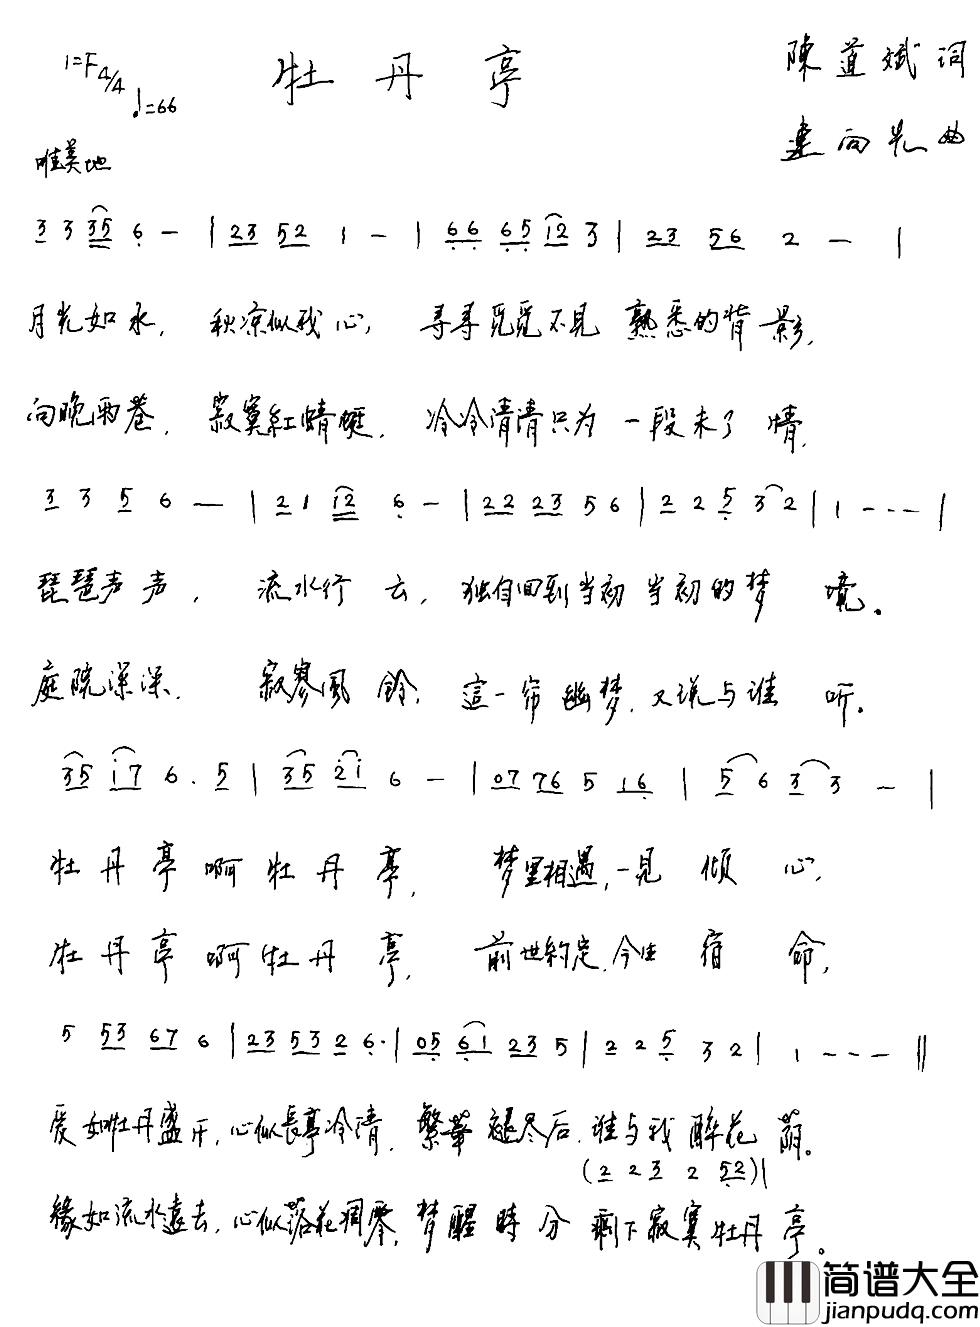 1=F 4/4 ♩=66
牡丹亭
陳道斌词
连向先曲
唯美地
3 3 35 6 — | 23 52 1 — | 66 65 12 3 | 23 56 2 — |
月光如水, 秋凉似我心, 寻寻觅觅不见 熟悉的背影,
向晚雨巷, 寂寞紅蜻蜓, 冷冷清清只为 一段未了情,
3 3 5 6 — | 21 12 6 — | 22 23 56 | 2 2 5 3 2 | 1 --- |
琵琶声声, 流水行云, 独自回到当初 当初的梦境。
庭院深深, 寂寥風鈴, 這一帘幽梦, 又说与谁听。
35 i7 6. 5 | 35 2i 6 — | 07 76 5 16 | 5 6 3 3 — |
牡丹亭啊牡丹亭, 梦里相遇,一見傾心,
牡丹亭啊牡丹亭, 前世約定,今生宿命,
5 53 67 6 | 23 53 2 6. | 05 61 23 5 | 2 2 5 3 2 | 1 --- ‖
爱如牡丹盛开, 心似長亭冷清, 繁華褪尽后, 谁与我醉花荫。
(2 2 3 2 52)|
緣如流水遠去, 心似落花凋零, 梦醒時分 剩下寂寞牡丹亭。
简谱大全
jianpudq.com